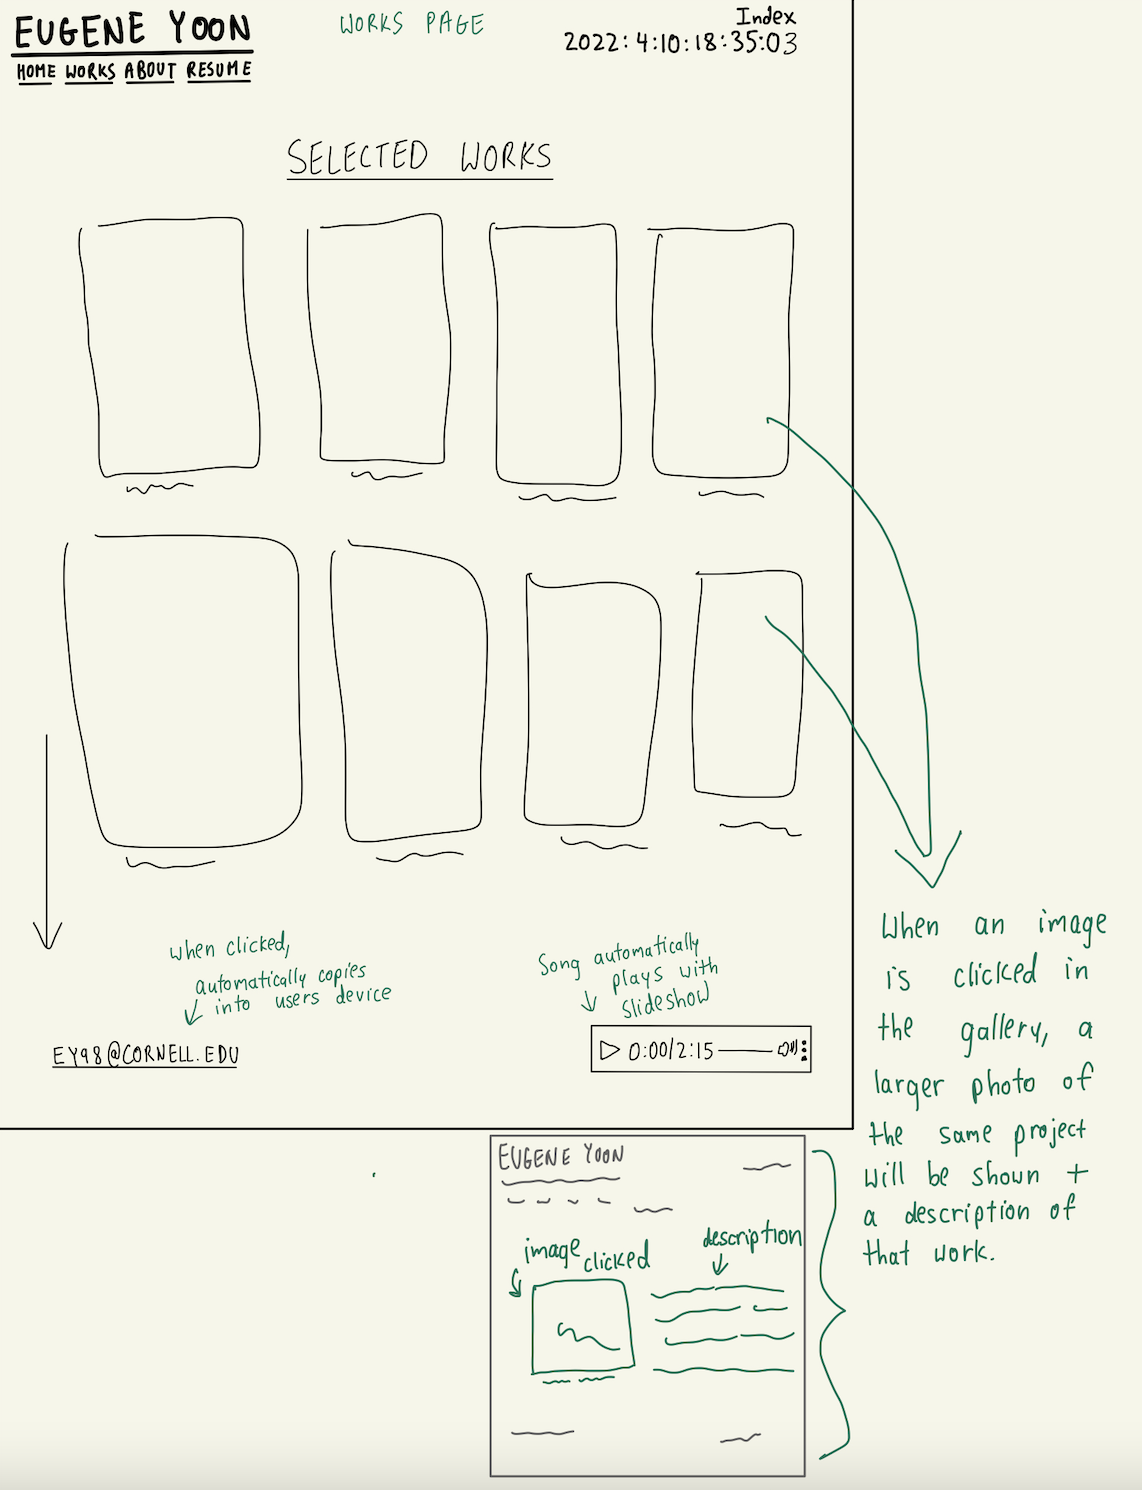 EUGENE YOON
HOME WORKS ABOUT RESUME
WORKS PAGE
Index
2022:4:10:18:35:03
SELECTED WORKS
when clicked,
automatically copies
into users device
EY98@CORNELL.EDU
Song automatically
plays with
slideshow
0:00/2:15
When an image
is clicked in
the gallery, a
larger photo of
the same project
will be shown +
a description of
that work.
EUGENE YOON
image clicked
description